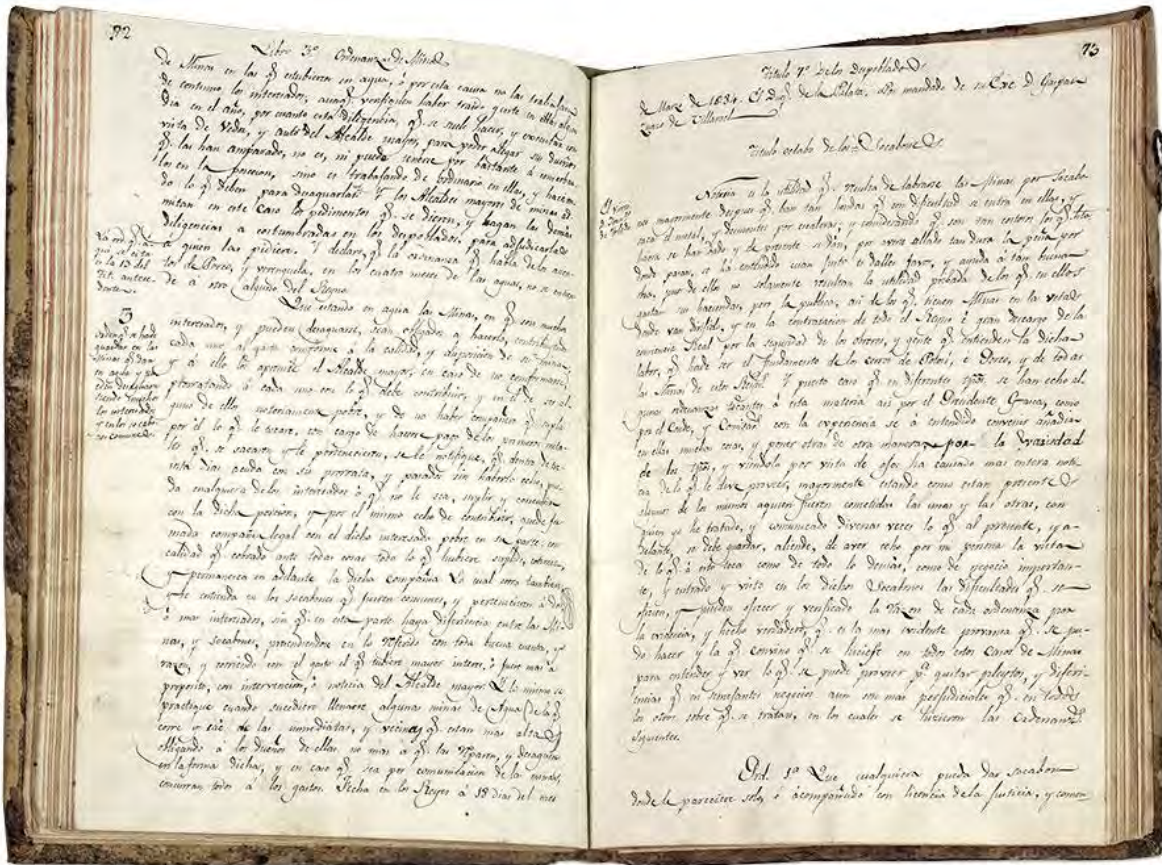 72
Libro 3º Ordenanzas de Minas
de Minas en las q̃ estubieren en agua, ó por esta causa no las trabajan
de continuo los interesados, aunq̃ verifiquen haber traido gente en ellas algun
dia en el año, por quanto esta diligencia, q̃ se suele hacer, y executar con
vista de Vedor, y auto del Alcalde mayor, para poder alegar su dominio
q̃ las han amparado, no es, ni puede tenerse por bastante á conservar-
los en la posecion, sino es trabajando de ordinario en ellas, y hacien-
do lo q̃ deben para desaguarlas. Y los Alcaldes mayores de minas ad-
mitan en este caso los pedimentos q̃ se dieren, y hagan las demas
diligencias acostumbradas en los despoblados, para adjudicarlas
a quien las pidiere. Y declaro, q̃ la ordenanza q̃ habla de los acien-
tos de Porco, y verenguela, en los cuatro meses de las aguas, no se entien-
de á otro alguno del Reyno.
5
Que estando en agua las Minas, en q̃ son muchos
interesados, y pueden desaguarse, sean obligados a hacerlo, contribuyendo
cada uno al gasto conforme á la calidad, y disposicion de su mina,
y á ello los apremie el Alcalde mayor, en caso de no conformarse,
prorrateando á cada uno con lo q̃ debe contribuir, y en el de ser al-
guno de ellos notoriamente pobre, y de no haber compañero q̃ supla
por el lo q̃ le tocare, con cargo de hacerse pago de los primeros meta-
les q̃ se sacaren y le pertenecieren, se le notifique, q̃ dentro de tre-
inta dias acuda con su prorrata, y pasados sin haberlo echo, pue-
da cualquiera de los interesados ó q̃ no lo sea, suplir y contribuir
con la dicha porcion, y por el mismo echo de contribuir, quede for-
mada compañia legal con el dicho interesado pobre en su parte: con
calidad q̃ cobrado ante todas cosas todo lo q̃ hubiere suplido,
y permanezca en adelante la dicha compañia. Lo cual corra tambien,
y se entienda en los socabones q̃ fueren comunes, y pertenecieren á dos
ó mas interesados, sin q̃ en esta parte haya diferencia entre las Mi-
nas, y socabones, procediendose en lo referido con toda buena cuenta, y
razon, y corriendo con el gasto el q̃ tubiere mayor interes, ó fuere mas á
proposito, con intervencion, ó noticia del Alcalde mayor. Y lo mismo se
practique cuando sucediere llenarse algunas minas de Agua de la q̃
corre y cae de las inmediatas, y vecinas q̃ estan mas altas
obligando á los dueños de ellas no mas á q̃ las reparen, y desaguen
en la forma dicha, y en caso q̃ sea por comunicacion de las minas,
concurran todos á los gastos. Fecha en los Reyes á 18 dias del mes
73
Titulo 7º De los Despoblados.
de Marzo de 1634. El Conde de la Mexia. Por mandado de su Exc. D. Gaspar
de Villarroel
Titulo octabo de los Socabones.
El Virrey
D. Franco
de Toledo
Notoria es la utilidad q̃ resulta de labrarse las Minas por Socabo-
nes mayormente despues q̃ han tan hondas q̃ con dificultad se entra en ellas, y
saca el metal, y desmontes por escaleras, y considerando q̃ son tan costosos los q̃
hasta se han dado y de presente se dan, por averse allado tan dura la peña por
donde pasan, se ha entendido cuan justo es dalles favor, y ayuda á tan buena
obra, pues de ello no solamente resultan la utilidad probada de los q̃ en ellos
gastan su hacienda, pero la publica, asi de los q̃ tienen Minas en la veta á
donde van dirigidos, y en la contratacion de todo el Reyno é gran descargo de la
conciencia Real por la seguridad de los obreros, y gente q̃ entienden la dicha
labor, q̃ hade ser el fundamento de los cerros de Potosi, é Porco, y de todas
las Minas de estos Reynos. Y puesto caso q̃ en diferentes tp̃os, se han echo al-
gunas ordenanzas tocantes á esta materia asi por el Presidente Gasca, como
por el Conde, y Comisarios con la experiencia se á entendido convenir añadir
en ellas muchas cosas, y poner otras de otra manera por la variedad
de los tp̃os, y viendola por vista de ojos ha causado mas entera noti-
cia de lo q̃ se deve proveer, mayormente estando como estan presentes
algunos de los mismos aquien fueron cometidas las unas y las otras, con
quien yo he tratado, y comunicado diversas veces lo q̃ al presente, y a-
delante, se debe guardar, aliende, de aver echo por mi persona la visita
de lo q̃ á esto toca como de todo lo demas, como de negocio importan-
te, y entrado y visto en los dichos Socabones las dificultades q̃ se
ofrecen, y pueden ofrecer y verificado la razon de cada ordenanza por
la evidencia, y hecho verdadero, q̃ es la mas evidente provanza q̃ se pu-
do hacer y la q̃ convino q̃ se hiciese en todos estos casos de Minas
para entender y ver lo q̃ se puede proveer p.ª quitar pleytos, y diferi-
encias q̃ en semejantes negocios aun son mas perjudiciales q̃ en todos
los otros sobre q̃ se tratan, en los cuales se hicieron las Ordenanzas
siguientes.
Ord. 1ª Que cualquiera pueda dar socabon
donde le pareciere solo, ó acompañado con licencia de la Justicia, y comen-